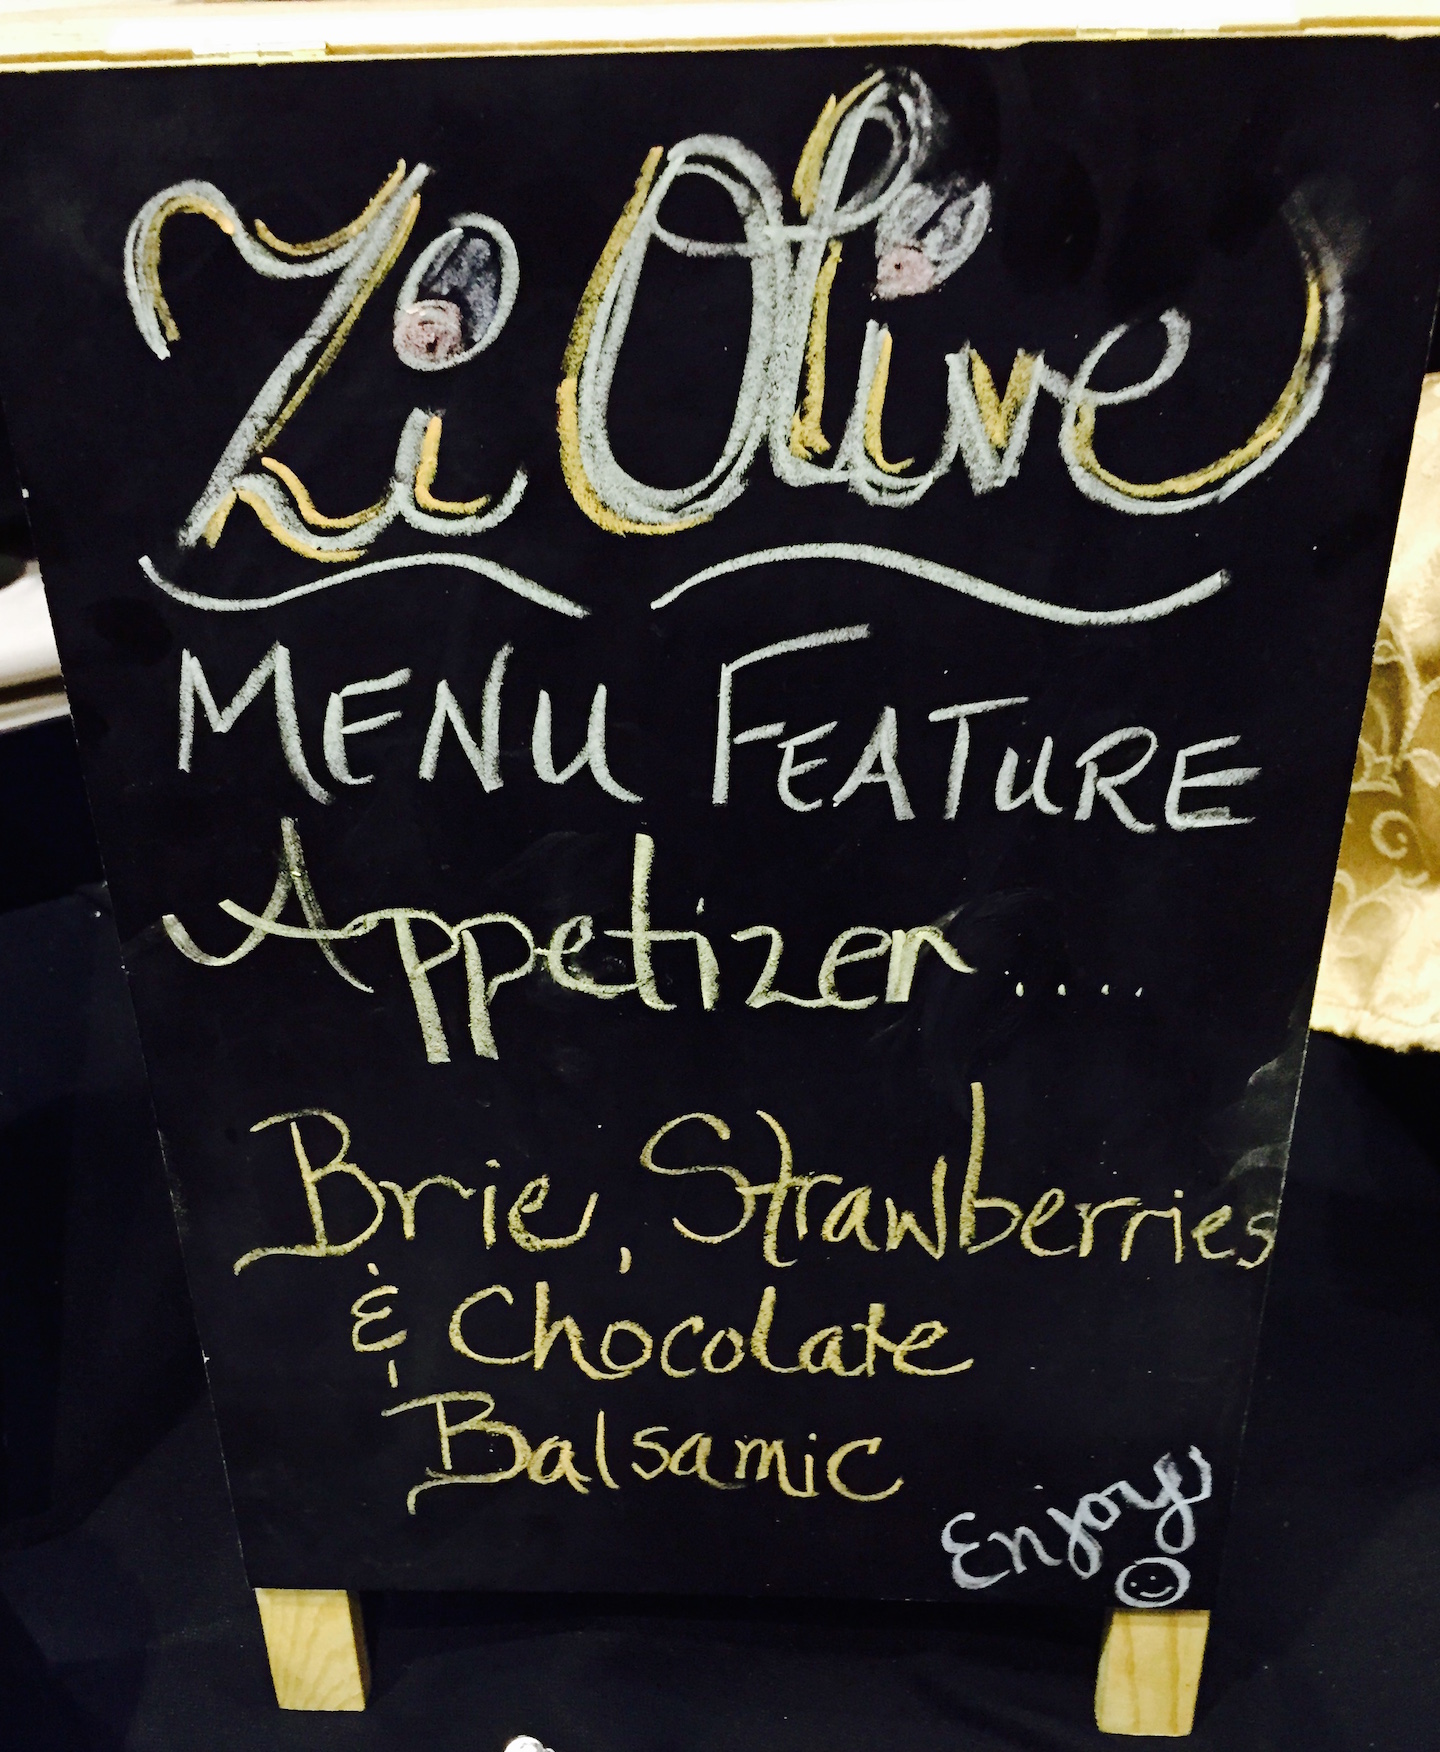 Zi Olive
MENU FEATURE
Appetizer....
Brie, Strawberries
& Chocolate
Balsamic
Enjoy